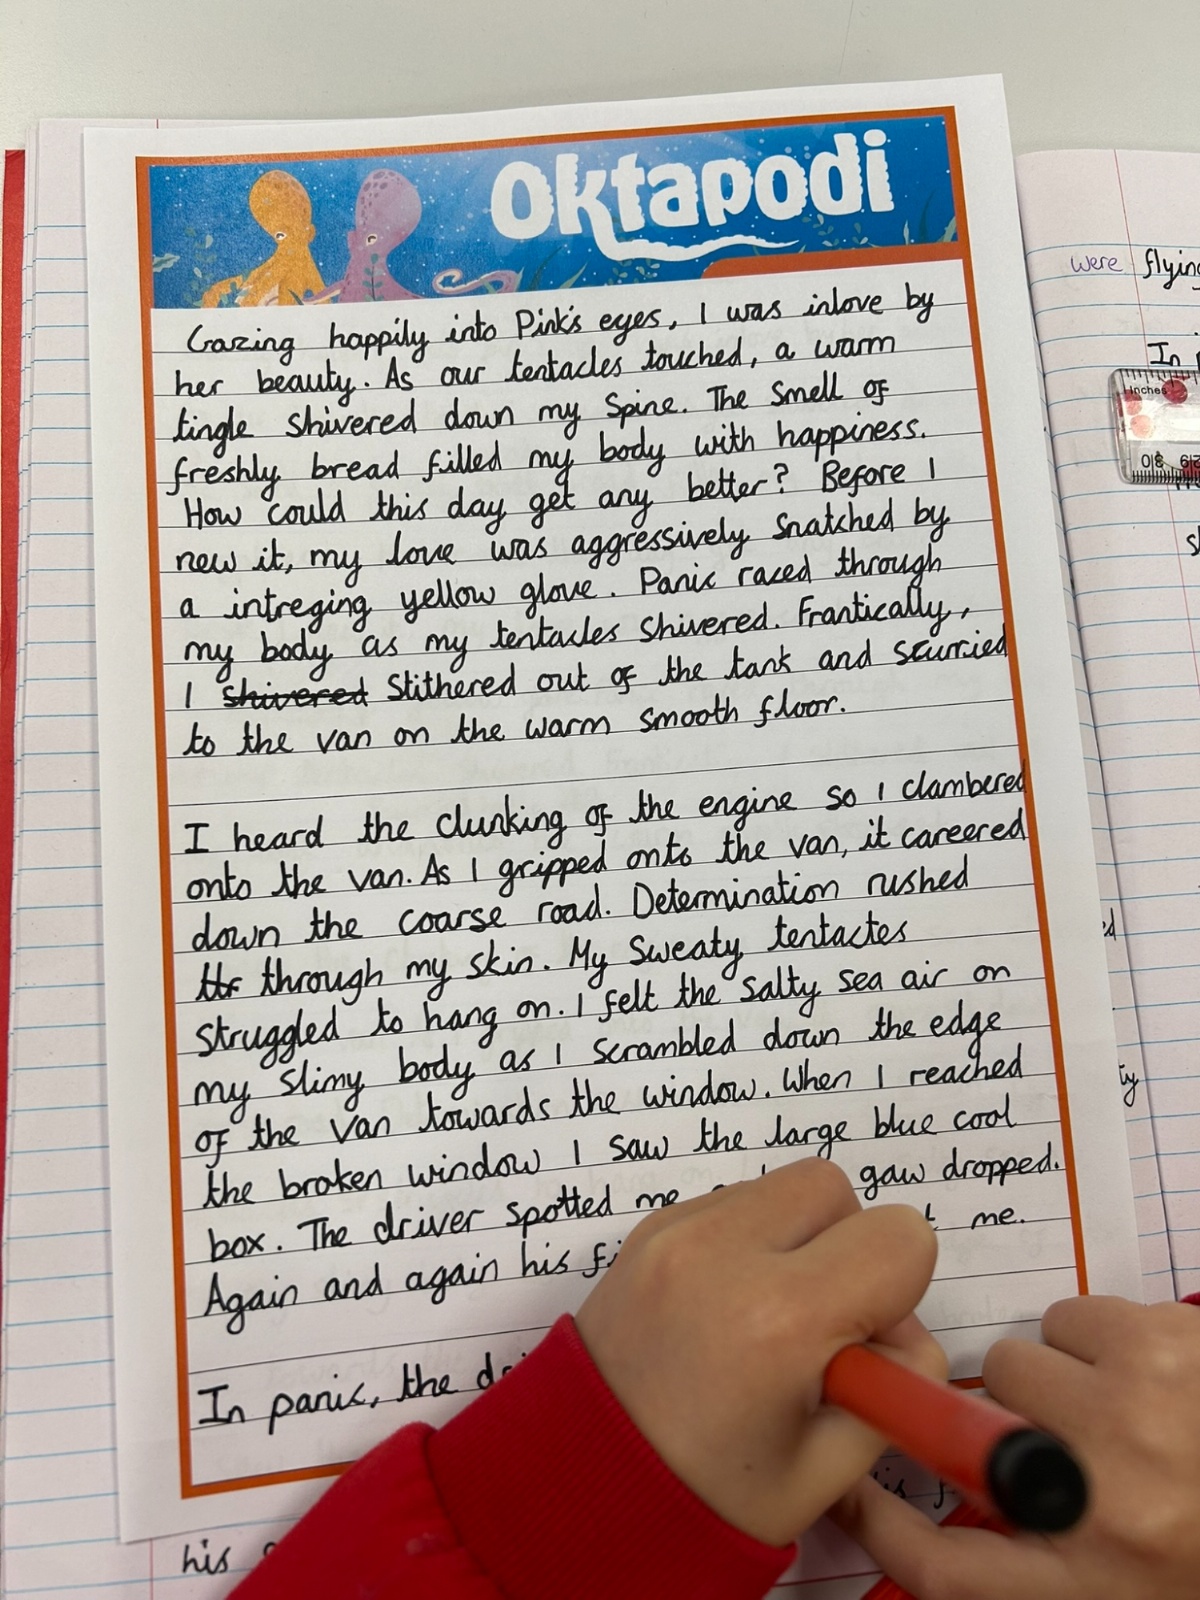 Oktapodi
Gazing happily into Pink's eyes, I was inlove by
her beauty. As our tentacles touched, a warm
tingle shivered down my spine. The smell of
freshly bread filled my body with happiness.
How could this day get any better? Before I
new it, my love was aggressively snatched by
a intreging yellow glove. Panic raced through
my body as my tentacles shivered. Frantically,
I shivered Slithered out of the tank and scurried
to the van on the warm smooth floor.
I heard the clunking of the engine so I clambered
onto the van. As I gripped onto the van, it careered
down the coarse road. Determination rushed
ttr through my skin. My sweaty tentactes
struggled to hang on. I felt the salty sea air on
my slimy body as I scrambled down the edge
of the van towards the window. When I reached
the broken window I saw the large blue cool
box. The driver spotted me gaw dropped.
Again and again his me.
In panic, the
his
were flying
In
Inches